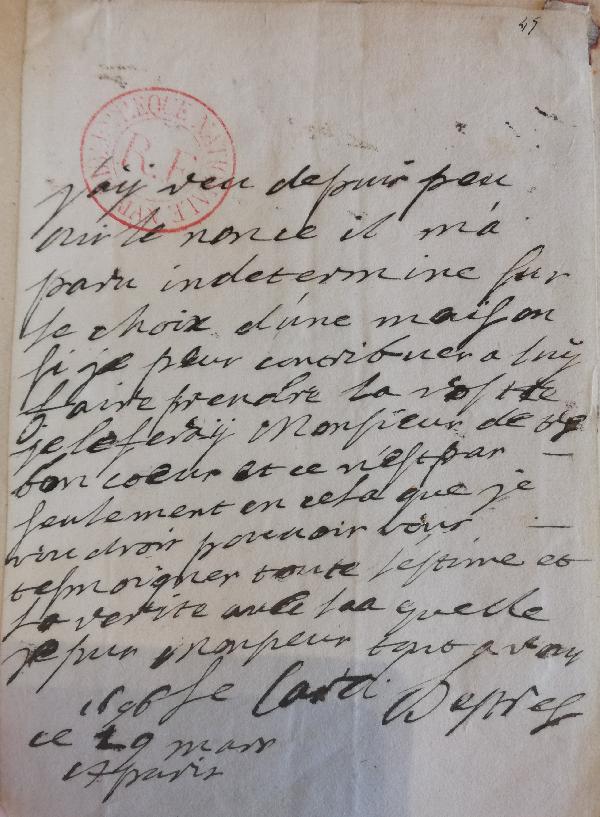 45
BIBLIOTHEQUE NATIONALE MSS
R.F
j'aij veu depuis peu
le nonce il m'a
paru indetermine sur
le choix d'une maison
si je peux contribuer a luij
faire prendre la vostre
je le feraij Monsieur de
bon coeur et ce n'est pas
seulement en cela que je
voudrois pouvoir vous
tesmoigner toute l'estime et
la verite avec laa quelle
je suis Monsieur tout a vous
le Card. Destrees
1696
ce 29 mars
A paris